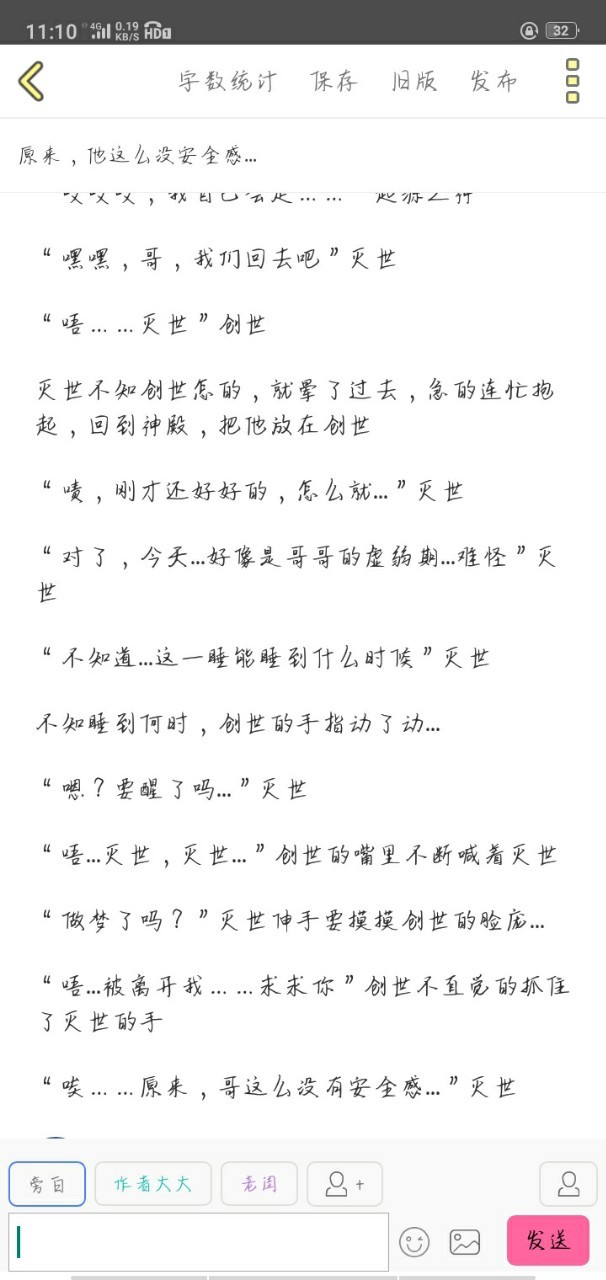 11:10 4G 0.19 KB/S HD 32
字数统计 保存 旧版 发布
原来，他这么没安全感...
“嘿嘿，哥，我们回去吧”灭世
“唔... ...灭世”创世
灭世不知创世怎的，就晕了过去，急的连忙抱
起，回到神殿，把他放在创世
“啧，刚才还好好的，怎么就...”灭世
“对了，今天...好像是哥哥的虚弱期...难怪”灭
世
“不知道...这一睡能睡到什么时候”灭世
不知睡到何时，创世的手指动了动...
“嗯？要醒了吗...”灭世
“唔...灭世，灭世...”创世的嘴里不断喊着灭世
“做梦了吗？”灭世伸手要摸摸创世的脸庞...
“唔...被离开我... ...求求你”创世不直觉的抓住
了灭世的手
“唉... ...原来，哥这么没有安全感...”灭世
旁白 作者大大 老闆 +
发送